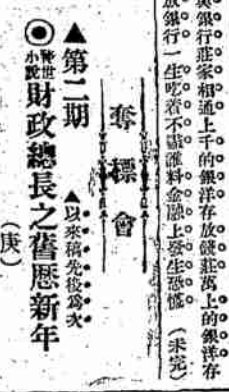 與銀行莊家相通上千的銀洋存放錢莊萬上的銀洋存
放銀行一生吃着不盡誰料金融上發生恐慌 (未完)
奪標會
▲第二期 ▲以來稿先後為次
◉警世小說 財政總長之舊歷新年
(庚)